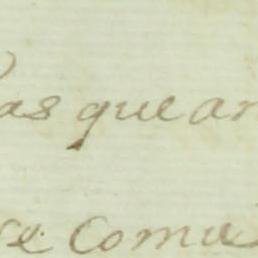 as que an
se comu